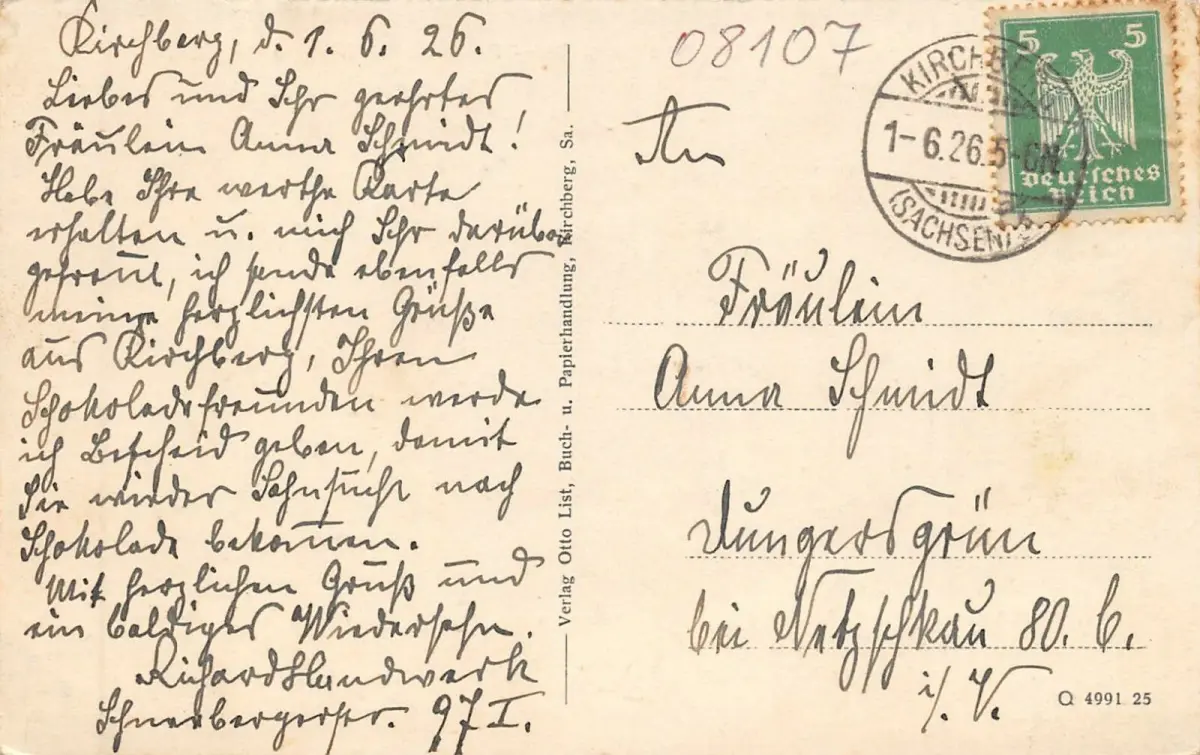 Kirchberg, d. 1. 6. 26.
Liebes und Ihr geehrtes
Fräulein Anna Schmidt!
Habe Ihre werthe Karte
erhalten u. mich Sehr darüber
gefreut, ich sende ebenfalls
meine herzlichsten Grüße
aus Kirchberg, Ihren
Schokoladefreunden werde
ich Bescheid geben, damit
Sie wieder Sehnsucht nach
Schokolade bekommen.
Mit herzlichen Gruß und
ein baldiges Wiedersehn.
Richard Handwerk
Schneebergerstr. 97 I.
Verlag Otto List, Buch- u. Papierhandlung, Kirchberg, Sa.
08107
An
Fräulein
Anna Schmidt
Dungersgrün
bei Netzschkau 80. b.
i/. V.
Q 4991 25
KIRCHBE
1-6.26.5-6N.
(SACHSEN)
5 5
Deutsches
Reich